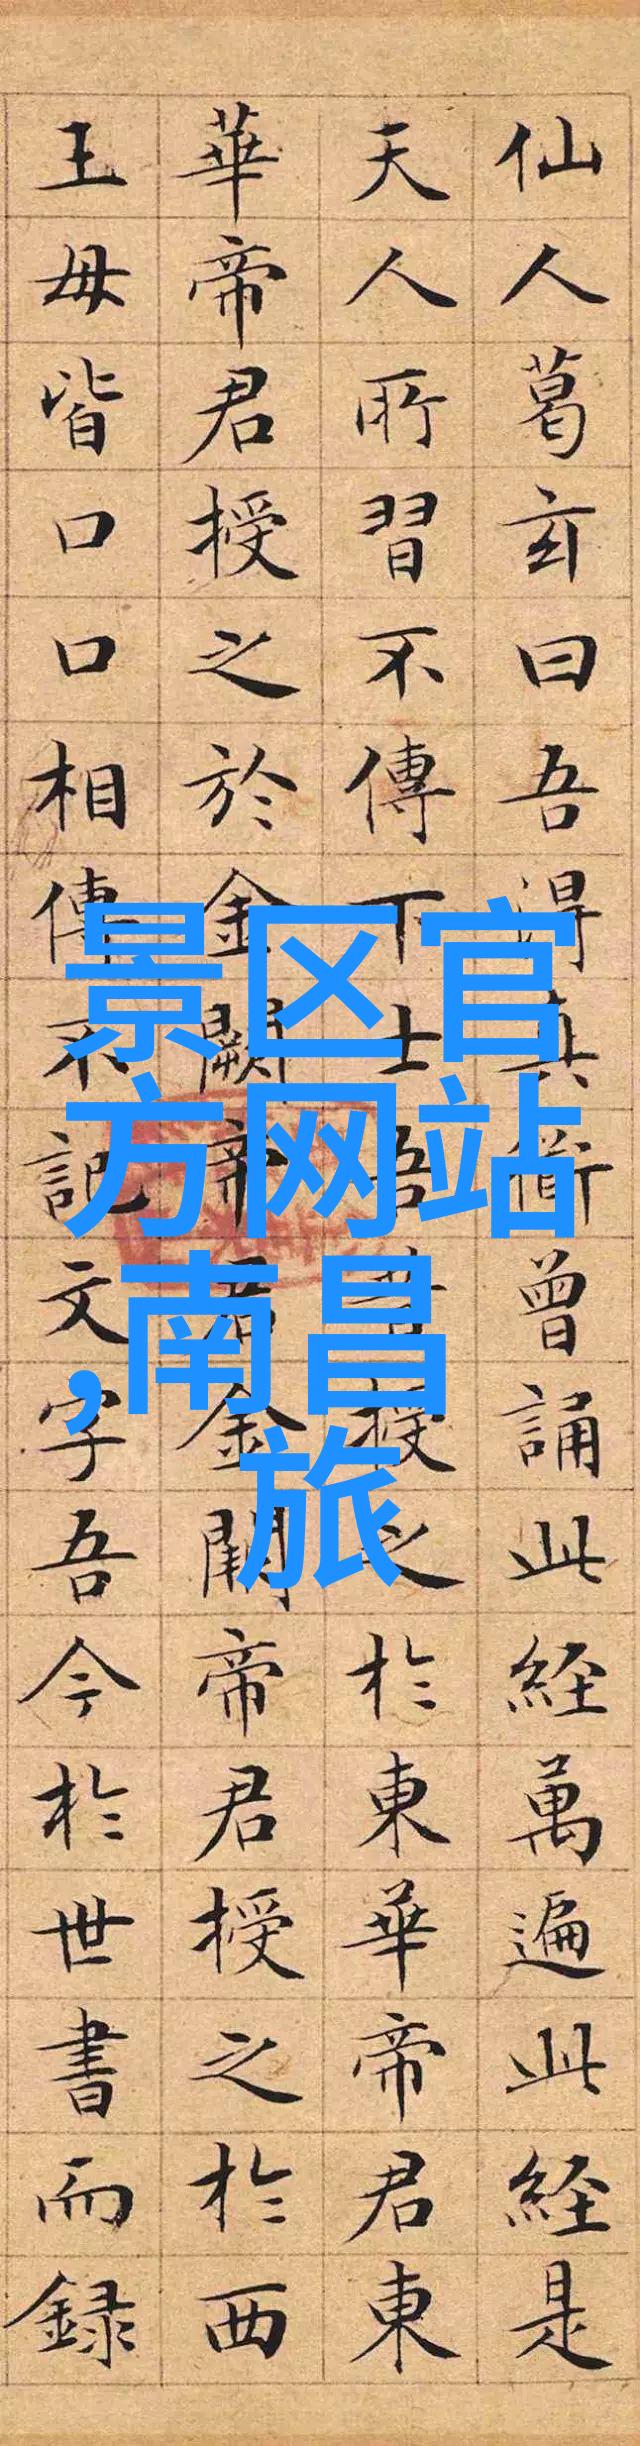 仙人葛玄曰吾得真衜曾誦此経萬遍此経是
天人所習不傳下士吾昔授之於東華帝君東
華帝君授之於金闕帝君金闕帝君授之於西
王母皆口口相傳不記文字吾今於世書而録
景区官
方网站
,南昌
旅